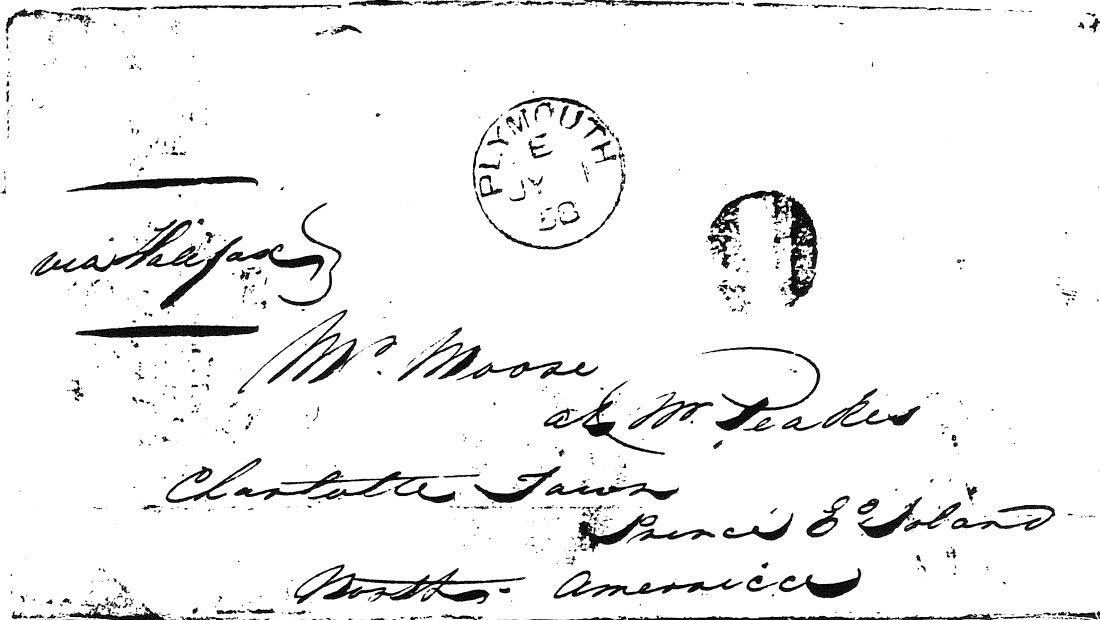 PLYMOUTH
E
JY 1
58
via Halifax
Mr. Moose
at Mr. Peakes
Charlotte Town
Prince Eo Island
North America